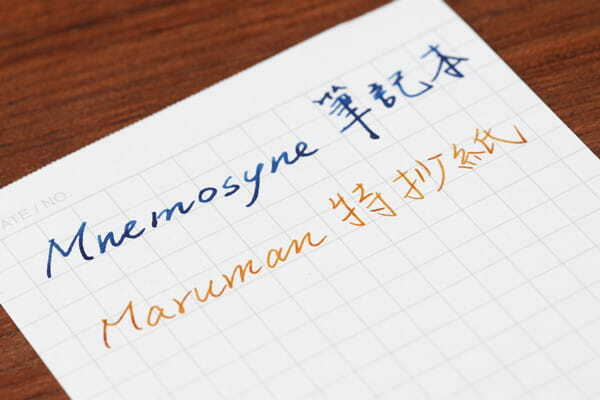 ATE / NO.
Mnemosyne 筆記本
Maruman 特抄紙